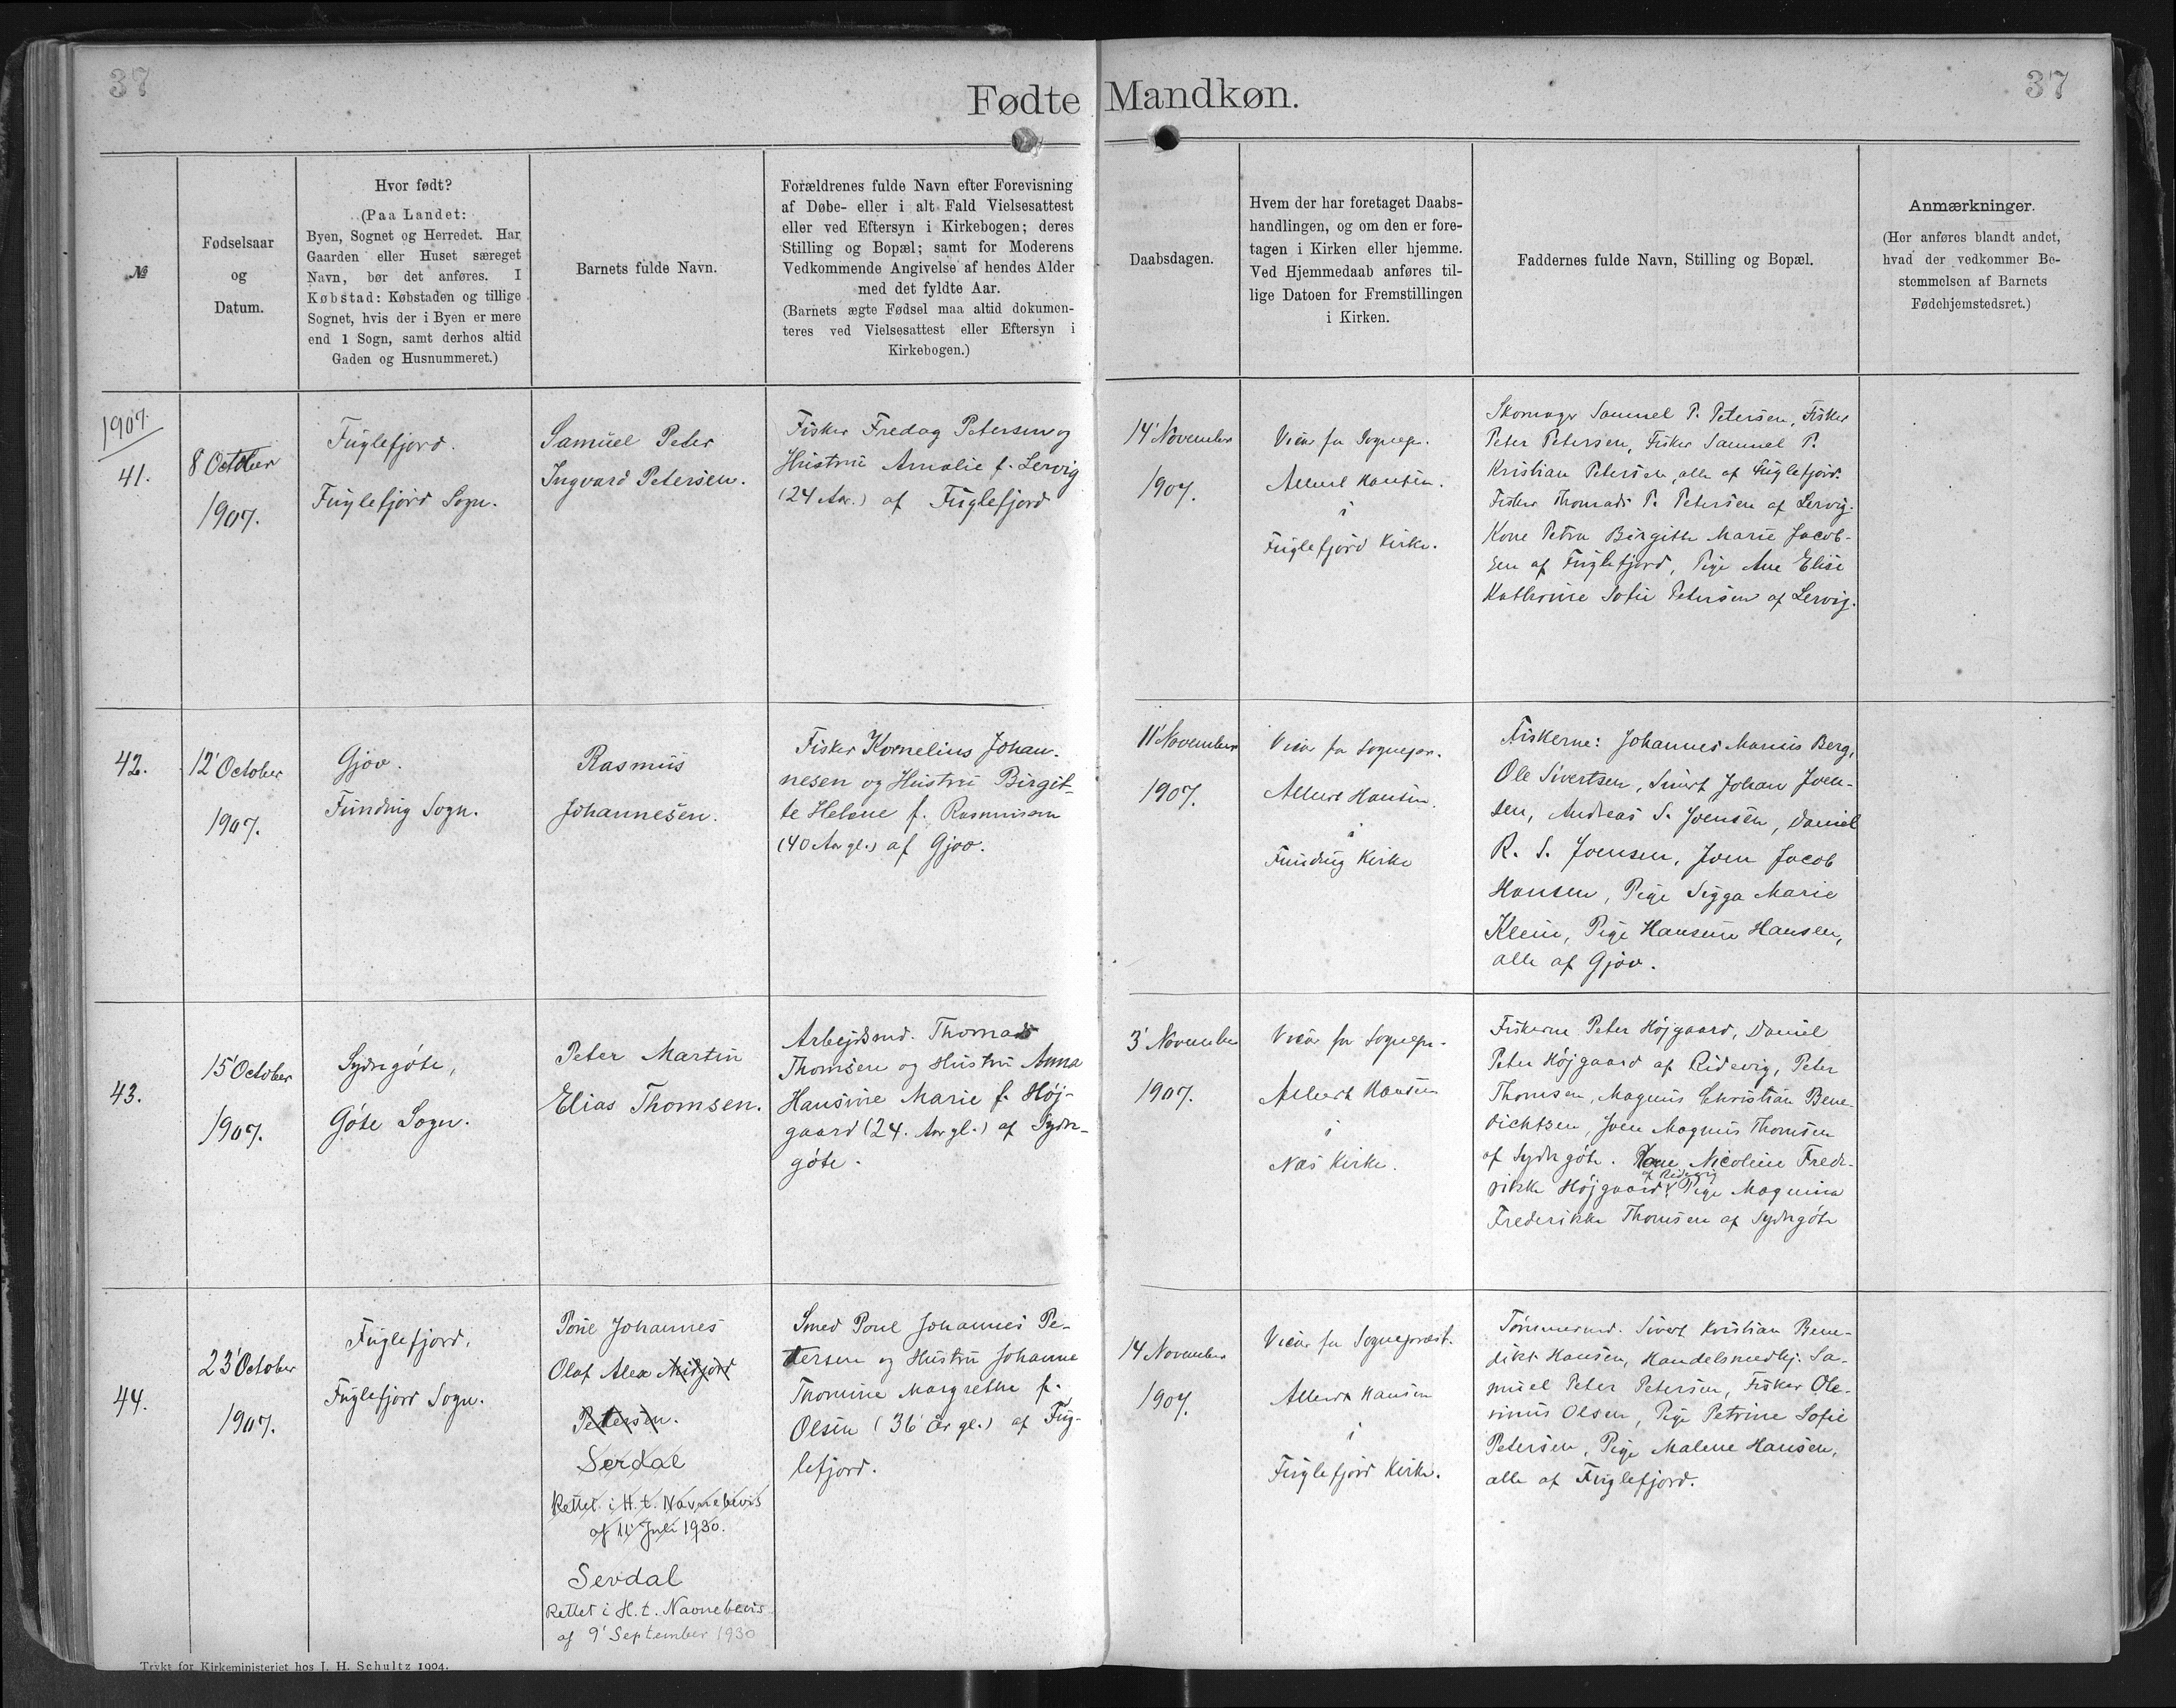 37
37
Fødte Mandkøn.
№
Fødselsaar
og
Datum.
Hvor født?
(Paa Landet:
Byen, Sognet og Herredet. Har
Gaarden eller Huset særeget
Navn, bør det anføres. I
Købstad: Købstaden og tillige
Sognet, hvis der i Byen er mere
end 1 Sogn, samt derhos altid
Gaden og Husnummeret.)
Barnets fulde Navn.
Forældrenes fulde Navn efter Forevisning
af Døbe- eller i alt Fald Vielsesattest
eller ved Eftersyn i Kirkebogen; deres
Stilling og Bopæl; samt for Moderens
Vedkommende Angivelse af hendes Alder
med det fyldte Aar.
(Barnets ægte Fødsel maa altid dokumen-
teres ved Vielsesattest eller Eftersyn i
Kirkebogen.)
Daabsdagen.
Hvem der har foretaget Daabs-
handlingen, og om den er fore-
tagen i Kirken eller hjemme.
Ved Hjemmedaab anføres til-
lige Datoen for Fremstillingen
i Kirken.
Faddernes fulde Navn, Stilling og Bopæl.
Anmærkninger.
(Her anføres blandt andet,
hvad der vedkommer Be-
stemmelsen af Barnets
Fødehjemstedsret.)
1907.
41.
8 October
1907.
Fuglefjord.
Fuglefjord Sogn.
Samuel Peter
Ingvard Petersen.
Fisker Fredag Petersen og
Hustru Amalie f. Lervig
(24 Aar.) af Fuglefjord
14' November
1907.
Vicar for Sognepr.
Albert Hansen.
i
Fuglefjord Kirke.
Skomager Samuel P. Petersen, Fisker
Peter Petersen, Fisker Samuel P.
Kristian Petersen, alle af Fuglefjord.
Fisker Thomads P. Petersen af Lervig.
Kone Petra Birgitte Marie Jacob-
sen af Fuglefjord, Pige Ane Elise
Kathrine Sofie Petersen af Lervig.
42.
12' October
1907.
Gjov.
Funding Sogn.
Rasmus
Johannesen.
Fisker Kornelius Johan-
nesen og Hustru Birgit-
te Helene f. Rasmussen
(40 Aar gl.) af Gjov.
11' November
1907.
Vicar for Sognepr.
Albert Hansen.
i
Funding Kirke
Fiskerne: Johannes Marius Berg,
Ole Sivertsen, Sivert Johan Joen-
sen, Andreas S. Joensen, Daniel
R. S. Joensen, Joen Jacob
Hansen, Pige Sigga Marie
Klein, Pige Hansine Hansen,
alle af Gjov.
43.
15' October
1907.
Sydrgøte,
Gøte Sogn.
Peter Martin
Elias Thomsen.
Arbejdsmd. Thomads
Thomsen og Hustru Anna
Hansine Marie f. Høj-
gaard (24. Aar gl.) af Sydr-
gøte.
3' November
1907.
Vicar for Sognepr.
Albert Hansen
i
Nes Kirke.
Fiskerne Peter Højgaard, Daniel
Peter Højgaard af Ridevig, Peter
Thomsen, Magnus Christian Bene-
dichtsen, Joen Magnus Thomsen
af Sydrgøte. Kone Nicoline Frede-
rikke Højgaard af Ridevig, Pige Magnina
Frederikke Thomsen af Sydrgøte
44.
23' October
1907.
Fuglefjord.
Fuglefjord Sogn.
Poul Johannes
Olaf Alex Midjord
Petersen.
Serdal
Rettet i H. t. Navnebevis
af 11' Juli 1930.
Sevdal
Rettet i H. t. Navnebevis
af 9' September 1930
Smed Poul Johannes Pe-
tersen og Hustru Johanne
Thomine Margrethe f.
Olsen (36 år gl.) af Fug-
lefjord.
14 November
1907.
Vicar for Sognepræst.
Albert Hansen
i
Fuglefjord Kirke.
Tømmermd. Sivert Kristian Bene-
dikt Hansen, Handelsmedhj. Sa-
muel Peter Petersen, Fisker Ole-
vinus Olsen, Pige Petrine Sofie
Petersen, Pige Malene Hansen,
alle af Fuglefjord.
Trykt for Kirkeministeriet hos J. H. Schultz 1904.